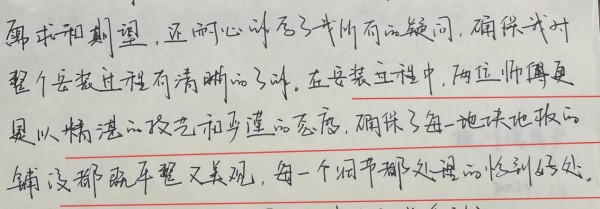 需求和期望，还耐心解答了我所有的疑问，确保我对
整个安装过程有清晰的了解。在安装过程中，两位师傅更
是以精湛的技艺和严谨的态度，确保了每一地块地板的
铺设都既平整又美观，每一个细节都处理的恰到好处。